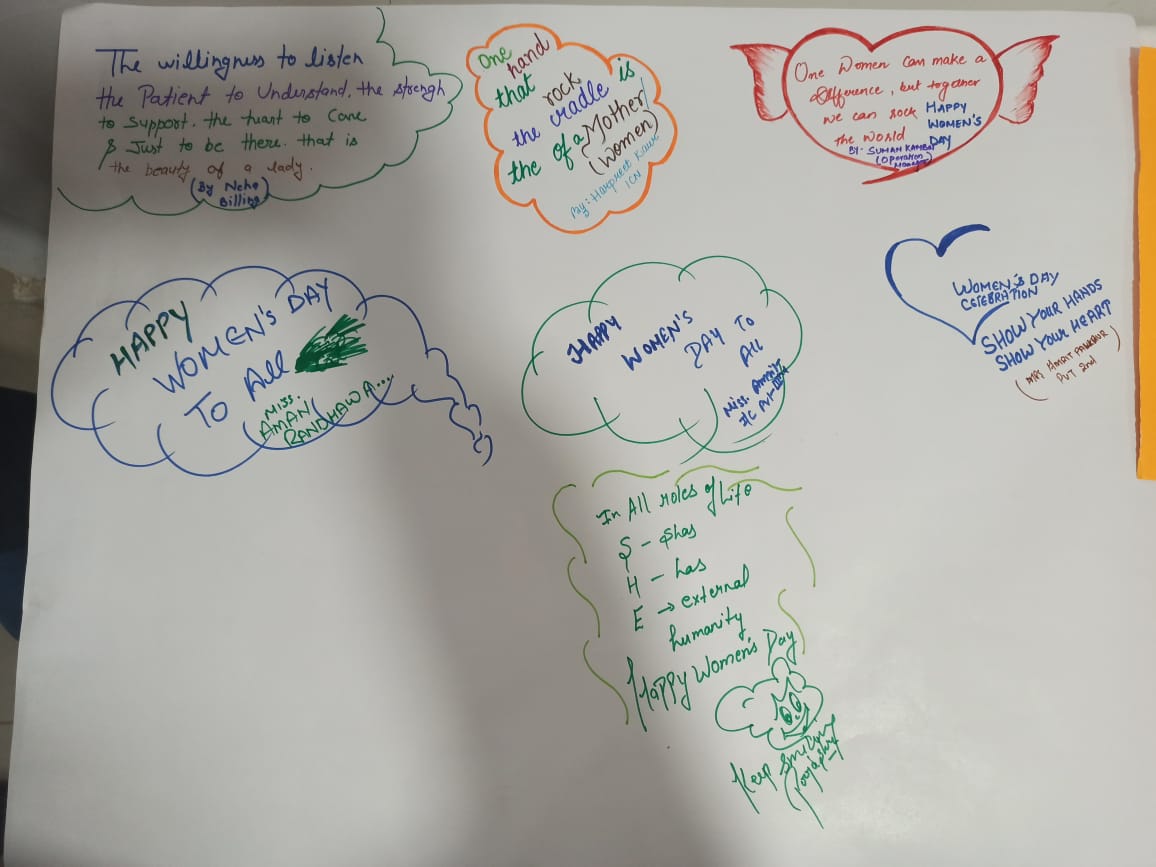 The willingness to listen
the Patient to Understand, the strengh
to support. the heart to Care
& Just to be there. that is
the beauty of a lady.
(By Neha
Billing)
One hand
that rock
the cradle is
the of a Mother/
(Women)
By: Harpreet Kaur
ICN
One Women Can make a
difference, but together
we can rock HAPPY
the world WOMEN'S
DAY
BY: SUMAN KAMBOJ
(Operation
Manager)
HAPPY
WOMEN'S DAY
To All
MISS.
AMAN
RANDHAWA...
HAPPY
WOMEN'S
DAY To
All
Miss. Amrit
I/C Pvt-IIIrd
WOMEN'S DAY
CELEBRATION
SHOW YOUR HANDS
SHOW YOUR HEART
(MRS AMRITPAL KAUR
PVT 2nd)
In All roles of Life
S - Shas
H - has
E → external
humanity
Happy Women's Day
Keep Smiling